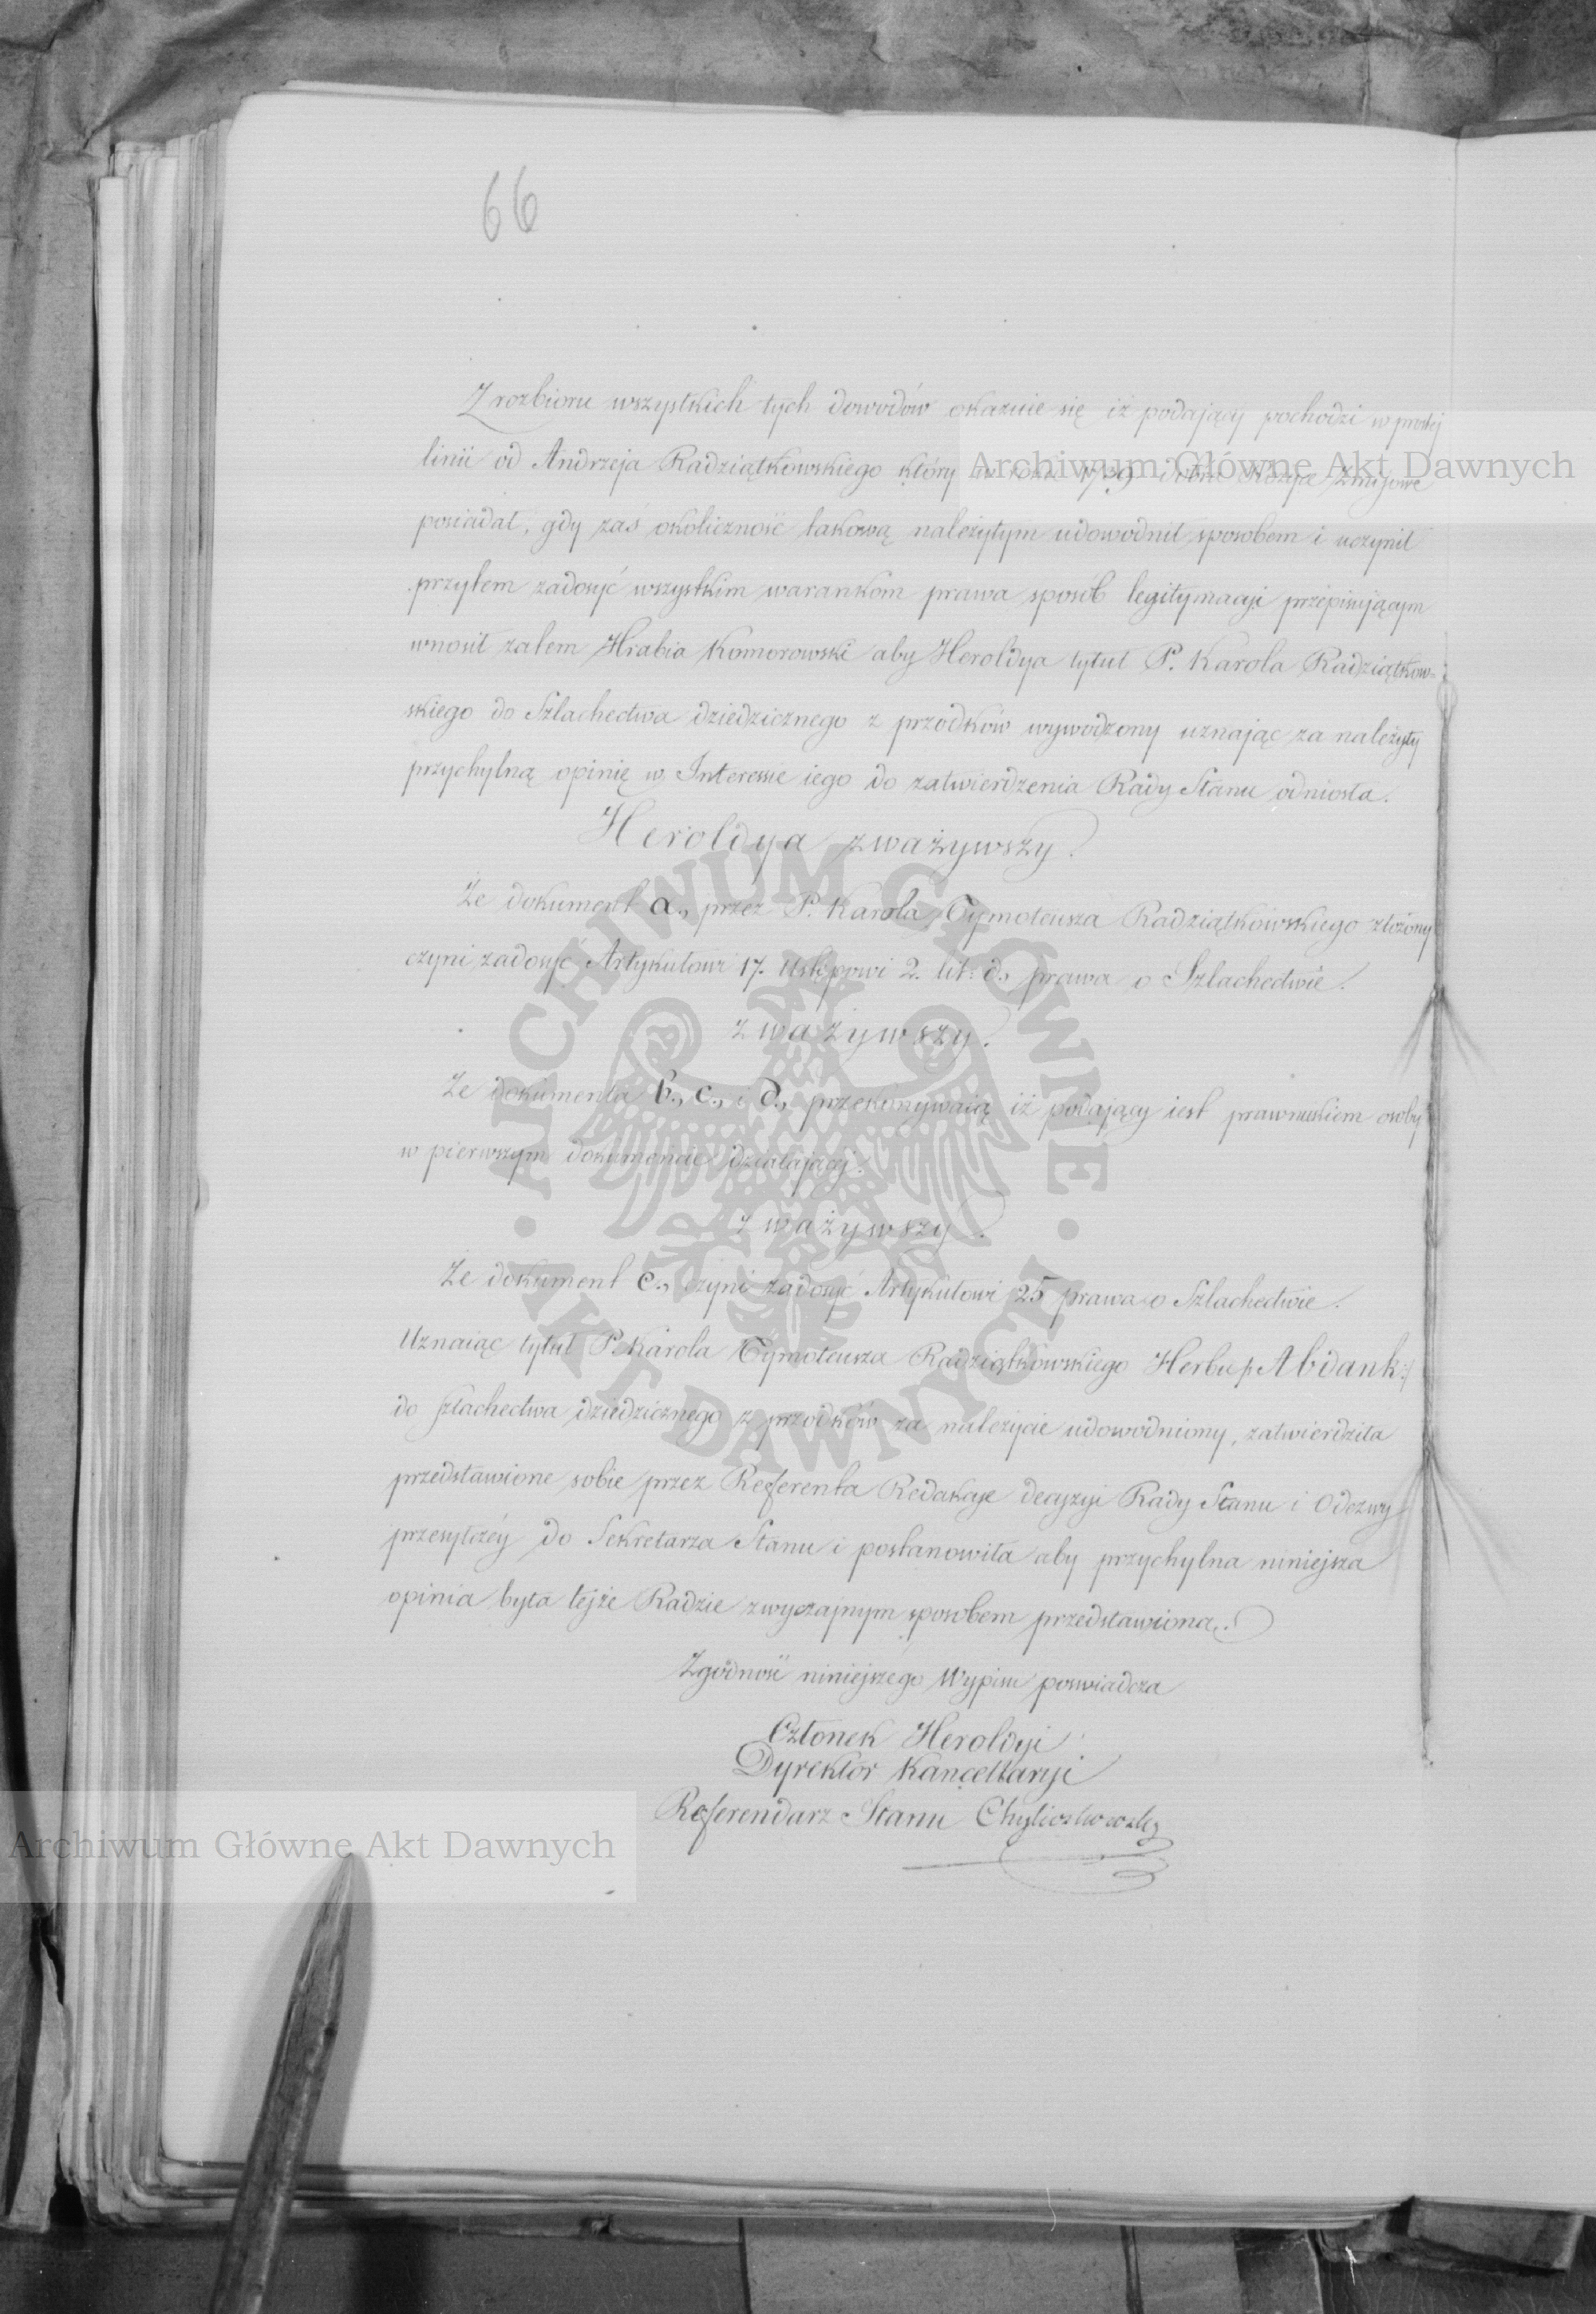 66
Z rozbioru wszystkich tych dowodów okazuie się iż podający pochodzi w prostej
linii od Andrzeja Radziątkowskiego który w roku 1739 dobra
Archiwum Główne Akt Dawnych
posiadał, gdy zaś okoliczność takową należytym udowodnił sposobem i uczynił
przytem zadosyć wszystkim warunkom prawa sposób legitymacyi przepisującym
wnosił zatem Hrabia Komorowski aby Heroldya tytuł P. Karola Radziątkow-
skiego do Szlachectwa dziedzicznego z przodków wywodzony uznając za należyty
przychylną opinię w Interessie iego do zatwierdzenia Rady Stanu odniosła.
Heroldya zważywszy.
Że dokument a., przez P. Karola Tymoteusza Radziątkowskiego złożony
czyni zadosyć Artykułowi 17. Ustępowi 2. lit: d., prawa o Szlachectwie.
zważywszy.
Że dokumenta b., c., i d., przekonywaią iż podający iest prawnukiem osoby
w pierwszym dokumencie działającej.
zważywszy.
Że dokument e., czyni zadosyć Artykułowi 25 prawa o Szlachectwie.
Uznaiąc tytuł P. Karola Tymoteusza Radziątkowskiego Herbu /: Abdank :/
do szlachectwa dziedzicznego z przodków za należycie udowodniony, zatwierdziła
przedstawione sobie przez Referenta Redakcje decyzyi Rady Stanu i Odezwy
do Sekretarza Stanu i postanowiła aby przychylna niniejsza
opinia była tejże Radzie zwyczajnym sposobem przedstawiona.
Zgodność niniejszego Wypisu poswiadcza
Członek Heroldyi
Dyrektor Kancellaryi
Referendarz Stanu
Archiwum Główne Akt Dawnych
ARCHIWUM GŁÓWNE · AKT DAWNYCH ·